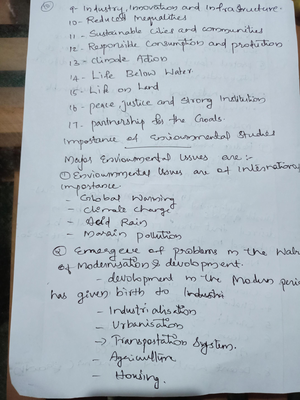 9- Industry, Innovation and Infrastructure.
10- Reduced Inequalities
11- Sustainable Cities and communities
12- Responsible Consumption and production
13- climate Action
14- Life Below Water.
15- Life on Land
16- peace, justice and strong Institution
17- partnership for the Goals.
Importance of Environmental Studies
Major Enviounmental Issues are :-
① Enviounmental Issues are of International
importance
- Global Warming
- Climate change
- Acid Rain
- Marain pollution
② Emergence of problems in the Wake
of Modernisation & development.
- development in the Modern peri
has given birth to Industri
- Industrialisation
- Urbanisation
→ Transpotation System.
- Agriculture
- Housing.